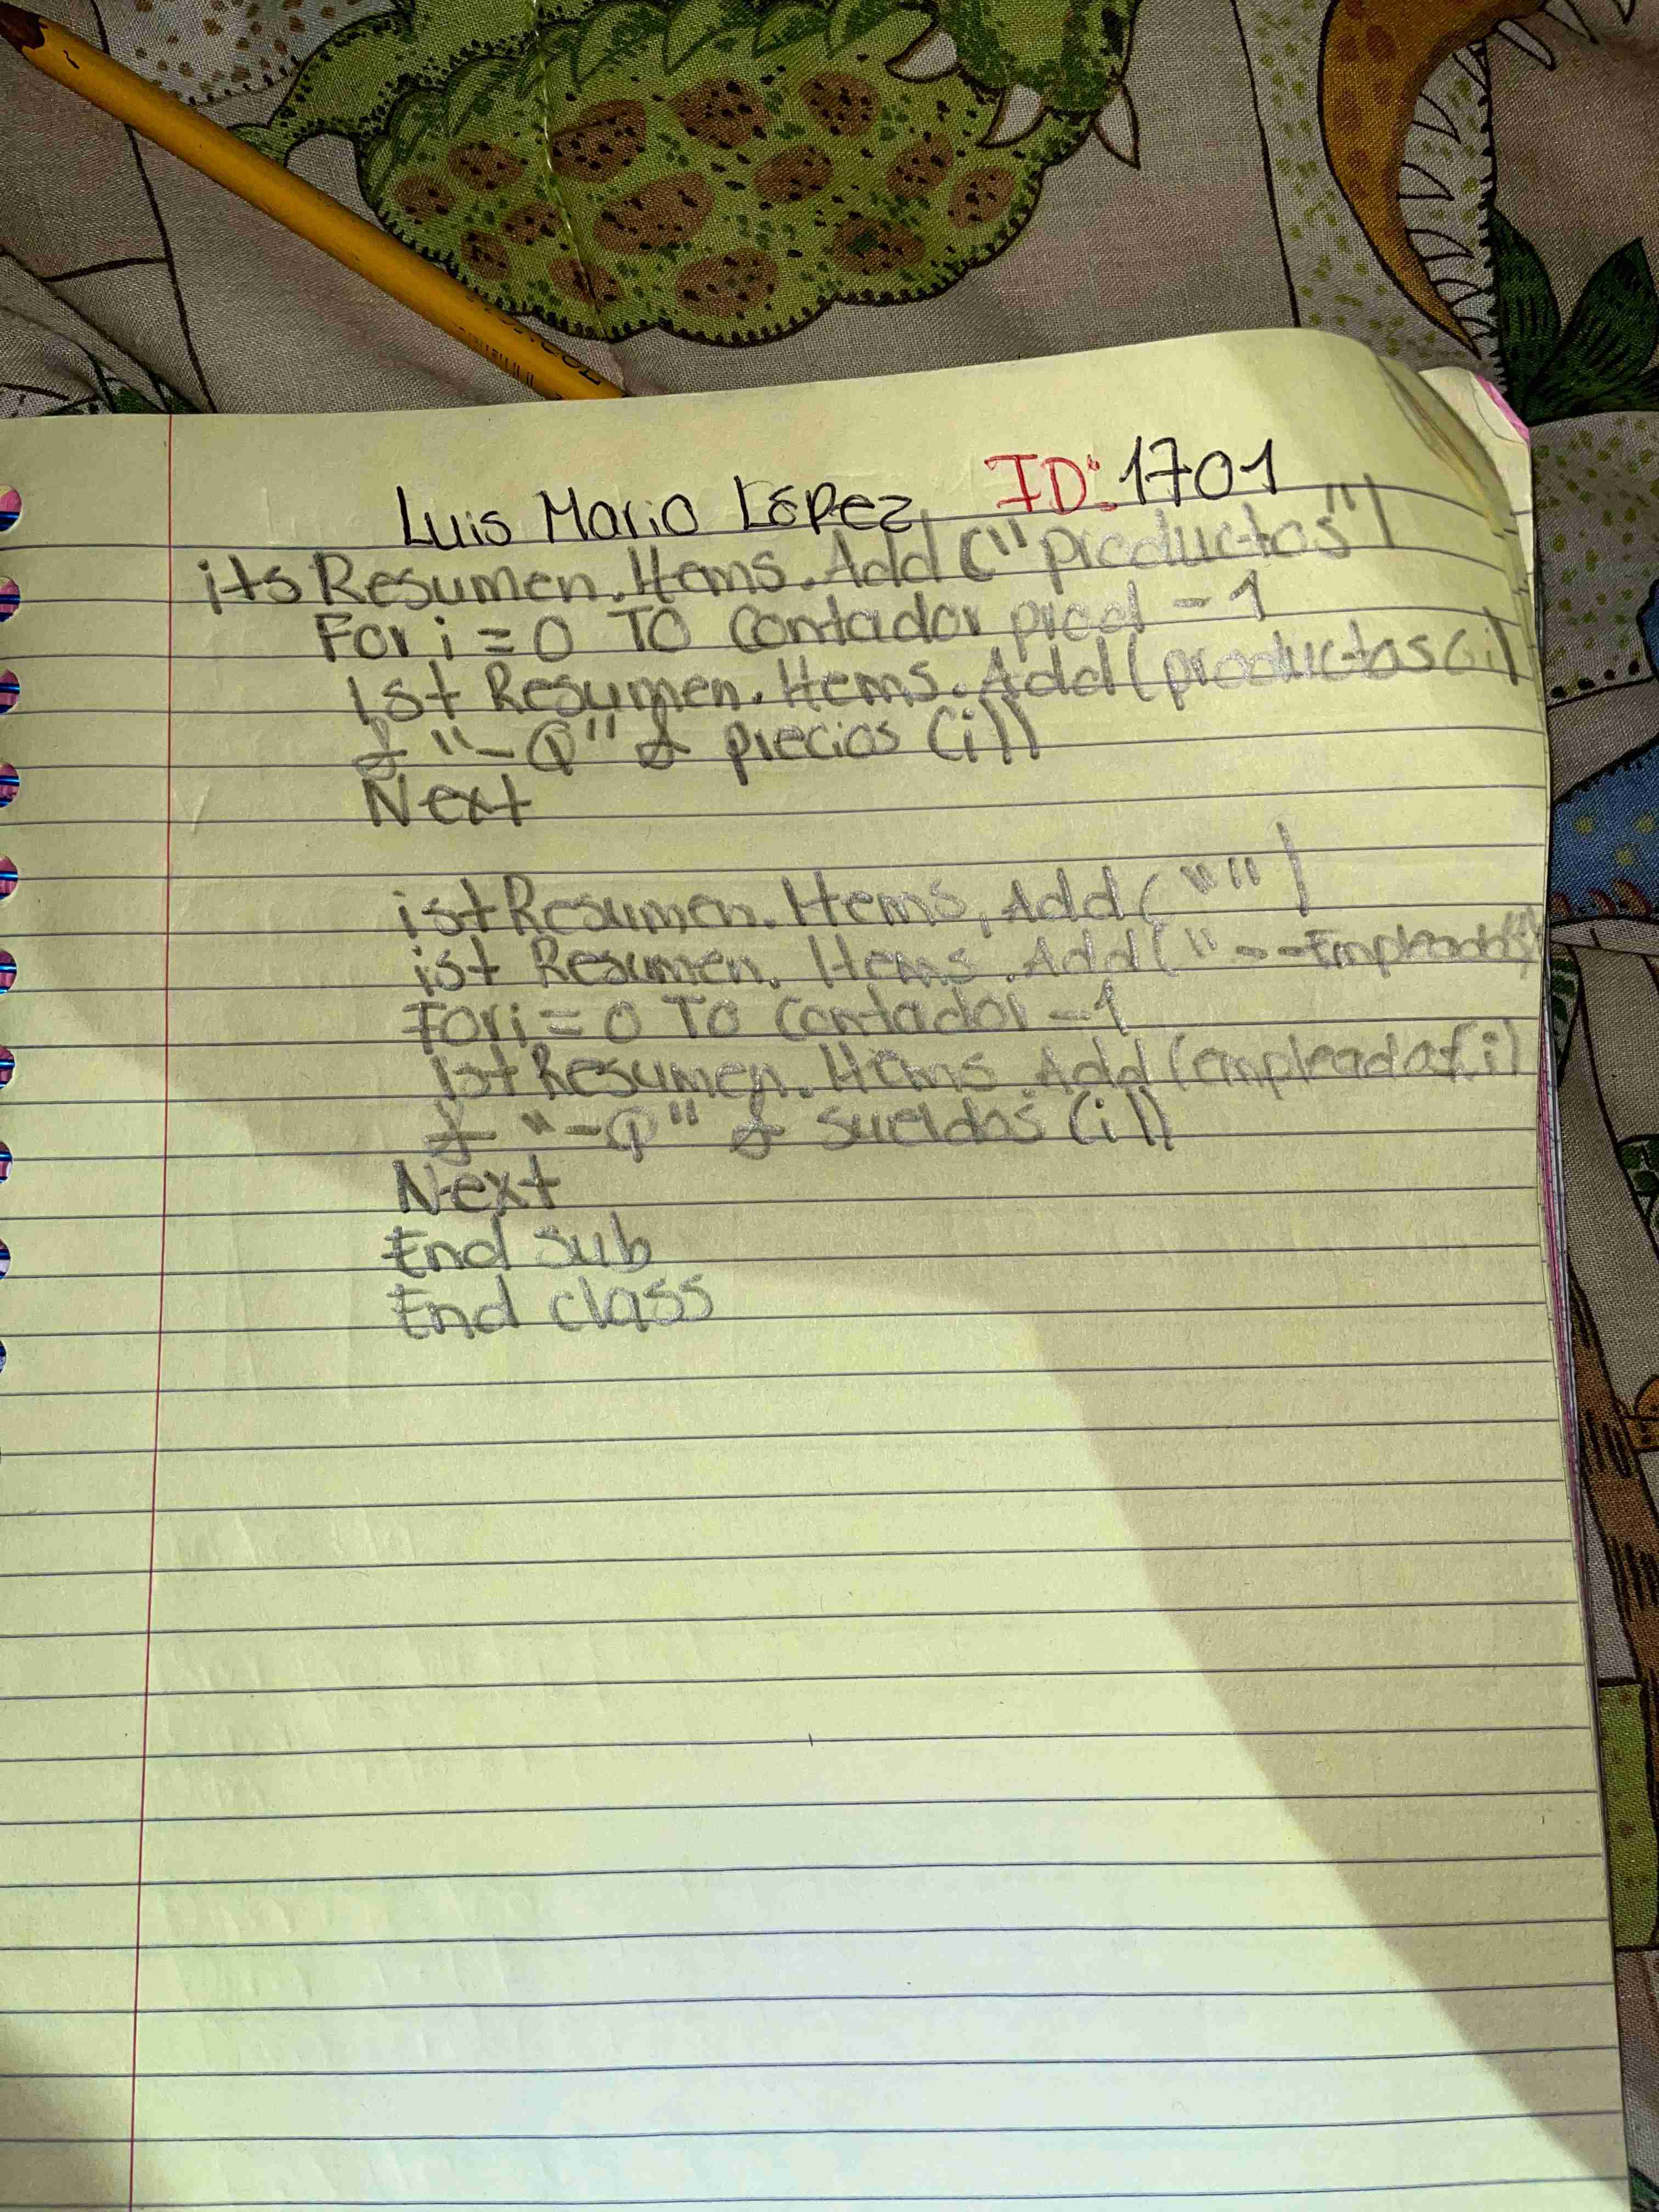 Luis Mario López ID: 1701
itsResumen.Items.Add("productos")
For i = 0 TO Contador prod - 1
lst Resumen.Items.Add(productos(i)
& "-Q" & precios (i))
Next
istResumen.Items,Add("")
ist Resumen.Items.Add("--Empleados")
For i = 0 TO Contador -1
lstResumen.Items.Add(empleados(i)
& "-Q" & sueldos (i))
Next
End sub
End class